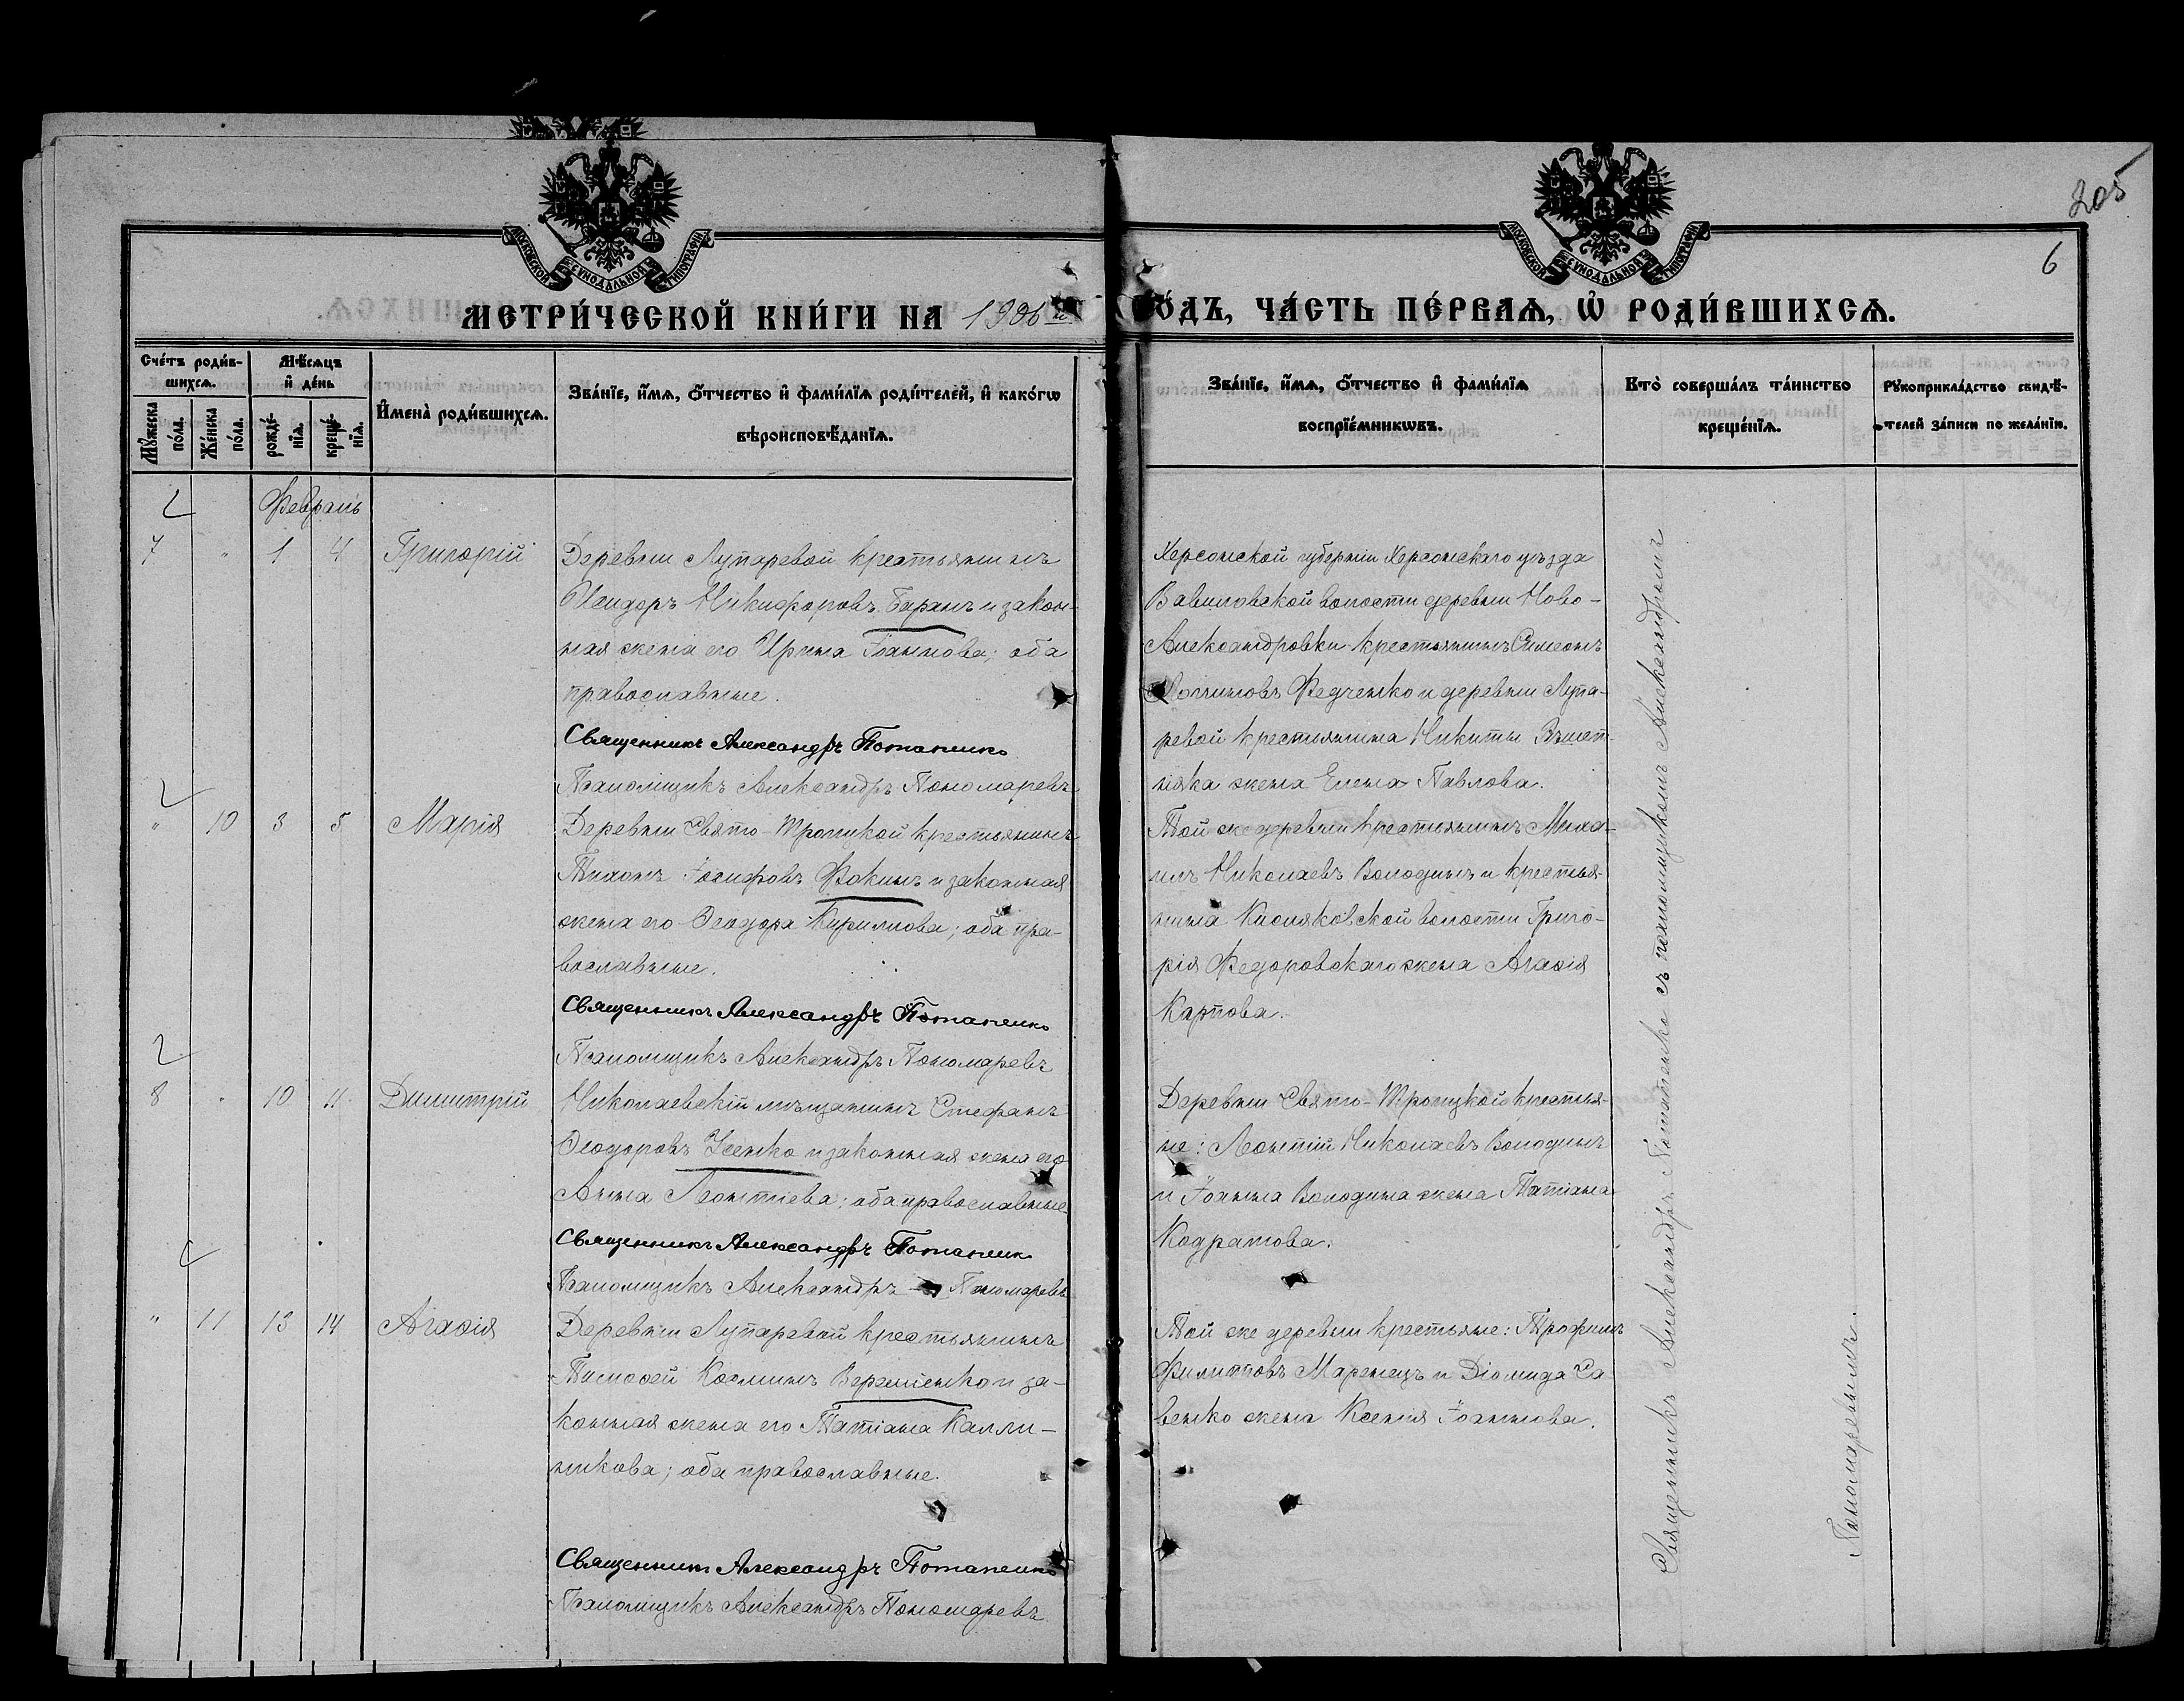 205
6
МОСКОВСКОЙ СѴНОДАЛЬНОЙ ТИПОГРАФІИ
МОСКОВСКОЙ СѴНОДАЛЬНОЙ ТИПОГРАФІИ
МЕТРИ́ЧЕСКОЙ КНИ́ГИ НА 1906й ГО́ДЪ, ЧА́СТЬ ПЕ́РВАѦ, Ѡ҆ РОДИ́ВШИХСѦ.
Сче́тъ роди́в-
шихсѧ.
Мꙋ́жеска по́ла.
Же́нска по́ла.
Мѣ́сѧцъ
и҆ де́нь
рожде́-нїѧ.
креще́-нїѧ.
И҆мена̀ роди́вшихсѧ.
Зва́нїе, и҆́мѧ, ѻ҆́тчество и҆ фами́лїѧ роди́телей, и҆ како́гѡ
вѣроисповѣ́данїѧ.
Зва́нїе, и҆́мѧ, ѻ҆́тчество и҆ фами́лїѧ
воспрїе́мникѡвъ.
Кто̀ соверша́лъ та́инство
креще́нїѧ.
Рꙋкоприкла́дство свидѣ́-
телей за́писи по жела́нїю.
Февраль
7 " 1 4 Григорій
Деревни Лупаревой крестьянинъ
Исидоръ Никифоровъ Баранъ и закон-
ная жена его Ирина Іоаннова; оба
православные.
Священникъ Александръ Потапенко
Псаломщикъ Александръ Пономаревъ
Херсонской губерніи Херсонскаго уѣзда
Вавиловской волости деревни Ново-
Александровки крестьянинъ Симеонъ
Федченко и деревни Лупа-
ревой крестьянина Никиты
жена Елена Павлова.
" 10 3 5 Марія
Деревни Свято-Троицкой крестьянинъ
Тихонъ Іосифовъ Фокинъ и законная
жена его Ѳеодора Кириллова; оба пра-
вославные.
Священникъ Александръ Потапенко
Псаломщикъ Александръ Пономаревъ
Той же деревни крестьянинъ Миха-
илъ Николаевъ Володинъ и крестья-
нина Кисляковской волости Григо-
рія Федоровскаго жена Агаѳія
Карпова.
8 " 10 11 Димитрій
Николаевскій мѣщанинъ Стефанъ
Ѳеодоровъ Усенко и законная жена его
Анна Леонтіева; оба православные.
Священникъ Александръ Потапенко
Псаломщикъ Александръ Пономаревъ
Деревни Свято-Троицкой крестья-
не: Леонтій Николаевъ Володинъ
и Іоанна Володина жена Татіана
Кодратова.
" 11 13 14 Агаѳія
Деревни Лупаревой крестьянинъ
Тимоѳей Косминъ Веремієнко и за-
конная жена его Татіана Калли-
никова; оба православные.
Священникъ Александръ Потапенко
Псаломщикъ Александръ Пономаревъ
Той же деревни крестьяне: Трофимъ
Филипповъ Маренецъ и Діомида Са-
венко жена Ксенія Іоаннова.
Священникъ Александръ Потапенко съ псаломщикомъ Александромъ
Пономаревымъ.